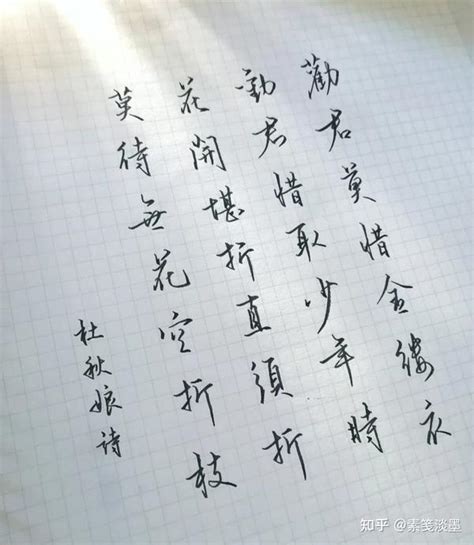 勸君莫惜金縷衣
勸君惜取少年時
花開堪折直須折
莫待無花空折枝
杜秋娘诗
知乎 @素笺淡墨